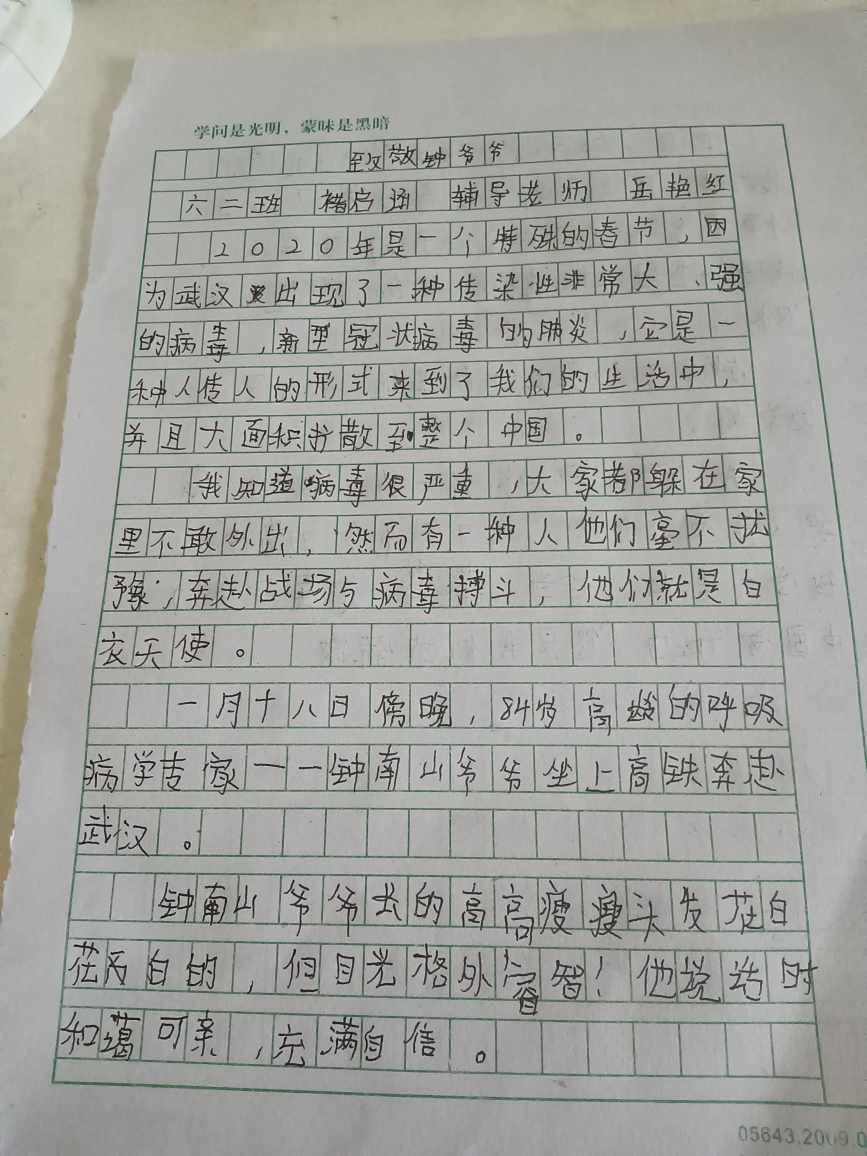 学问是光明，蒙昧是黑暗
致敬钟爷爷
六二班 褚启涵 辅导老师 岳艳红
2020年是一个特殊的春节，因
为武汉出现了一种传染性非常大、强
的病毒，新型冠状病毒的肺炎，它是一
种人传人的形式来到了我们的生活中，
并且大面积扩散至整个中国。
我知道病毒很严重，大家都躲在家
里不敢外出，然而有一种人他们毫不犹
豫，奔赴战场与病毒搏斗，他们就是白
衣天使。
一月十八日傍晚，84岁高龄的呼吸
病学专家——钟南山爷爷坐上高铁奔赴
武汉。
钟南山爷爷长的高高瘦瘦头发花白
花白的，但目光格外睿智！他说话时
和蔼可亲，充满自信。
05643.2009.0